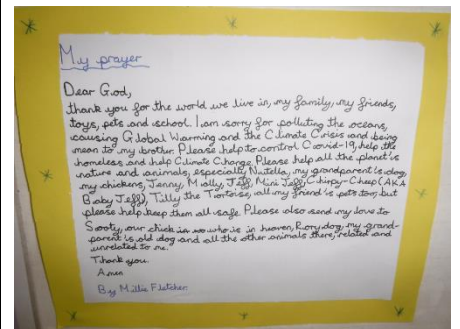 My prayer
Dear God,
thank you for the world we live in, my family, my friends,
toys, pets and school. I am sorry for polluting the oceans,
causing Global Warming and the Climate Crisis and being
mean to my brother. Please help to control Covid-19, help the
homeless and help Climate Change. Please help all the planet's
nature and animals, especially Nutella, my grandparent's dog,
my chickens, Jenny, Molly, Jeff, Mini Jeff, Chirpy-Cheep (AKA
Baby Jeff), Tilly the Tortoise, all my friend's pets too, but
please help keep them all safe. Please also send my love to
Sooty, our chick who is in heaven, Rory dog, my grand-
parent's old dog and all the other animals there, related and
unrelated to me.
Thank you.
Amen
By Millie Fletcher